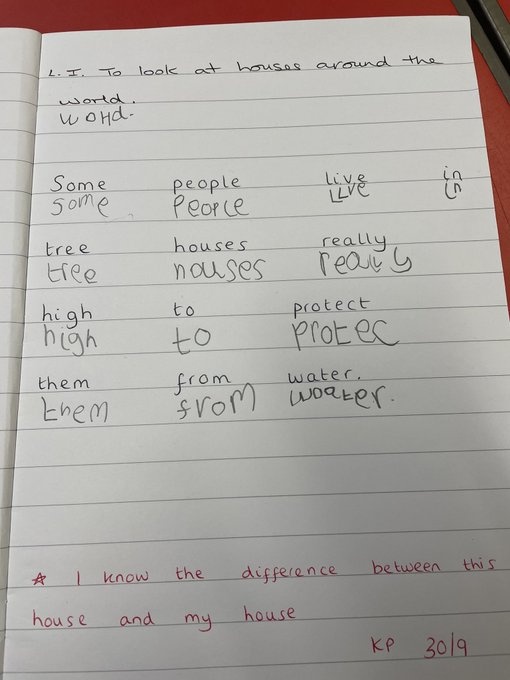 L.I. To look at houses around the
world.
WOHd.
Some people live in
some PeoPLe LLVe in
tree houses really
tree houses really
high to protect
high to protec
them from water.
them from woater.
☆ I know the difference between this
house and my house
KP 30/9